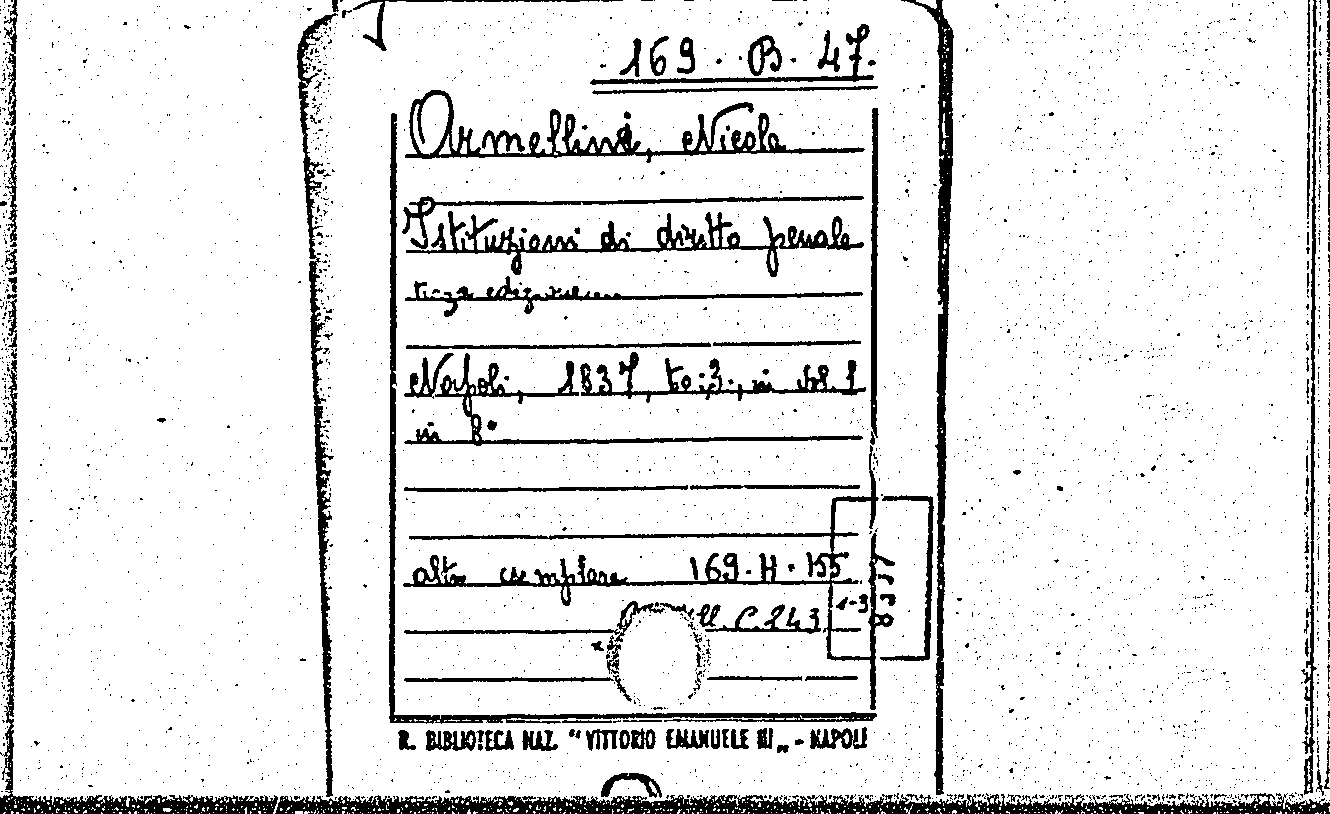 169. B. 47.
Armellini, Nicola
Istituzioni di diritto penale
terza edizione....
Napoli, 1837, to: 3., in vol. 1
in 8°
altro esemplare 169. H. 155
C. 243
1-3
R. BIBLIOTECA NAZ. “ VITTORIO EMANUELE III „ - NAPOLI